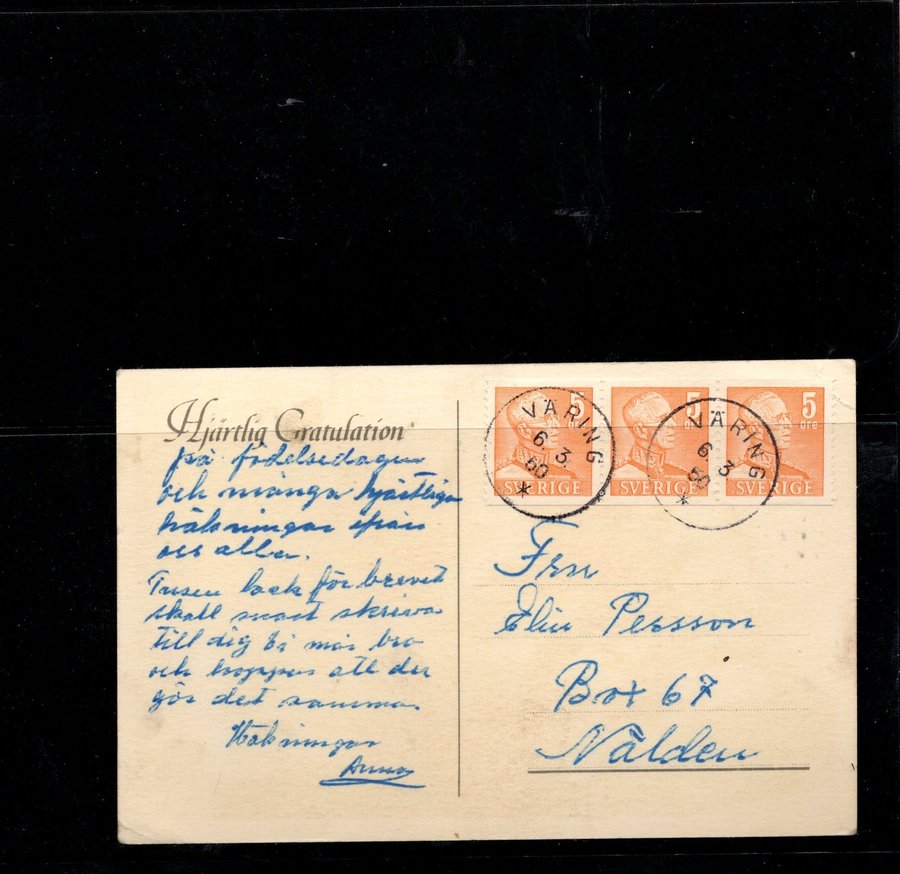 Hjärtlig Gratulation
på födelsedagen
och många hjärtliga
hälsningar från
oss alla.
Tusen tack för brevet
skall snart skriva
till dig Vi mår bra
och hoppas att du
gör det samma.
Hälsningar
Anna
5
öre
SVERIGE
5
öre
SVERIGE
5
öre
SVERIGE
VÄRING
6 3
60
VÄRING
6 3
60
Fru
Elin Persson
Box 67
Nälden